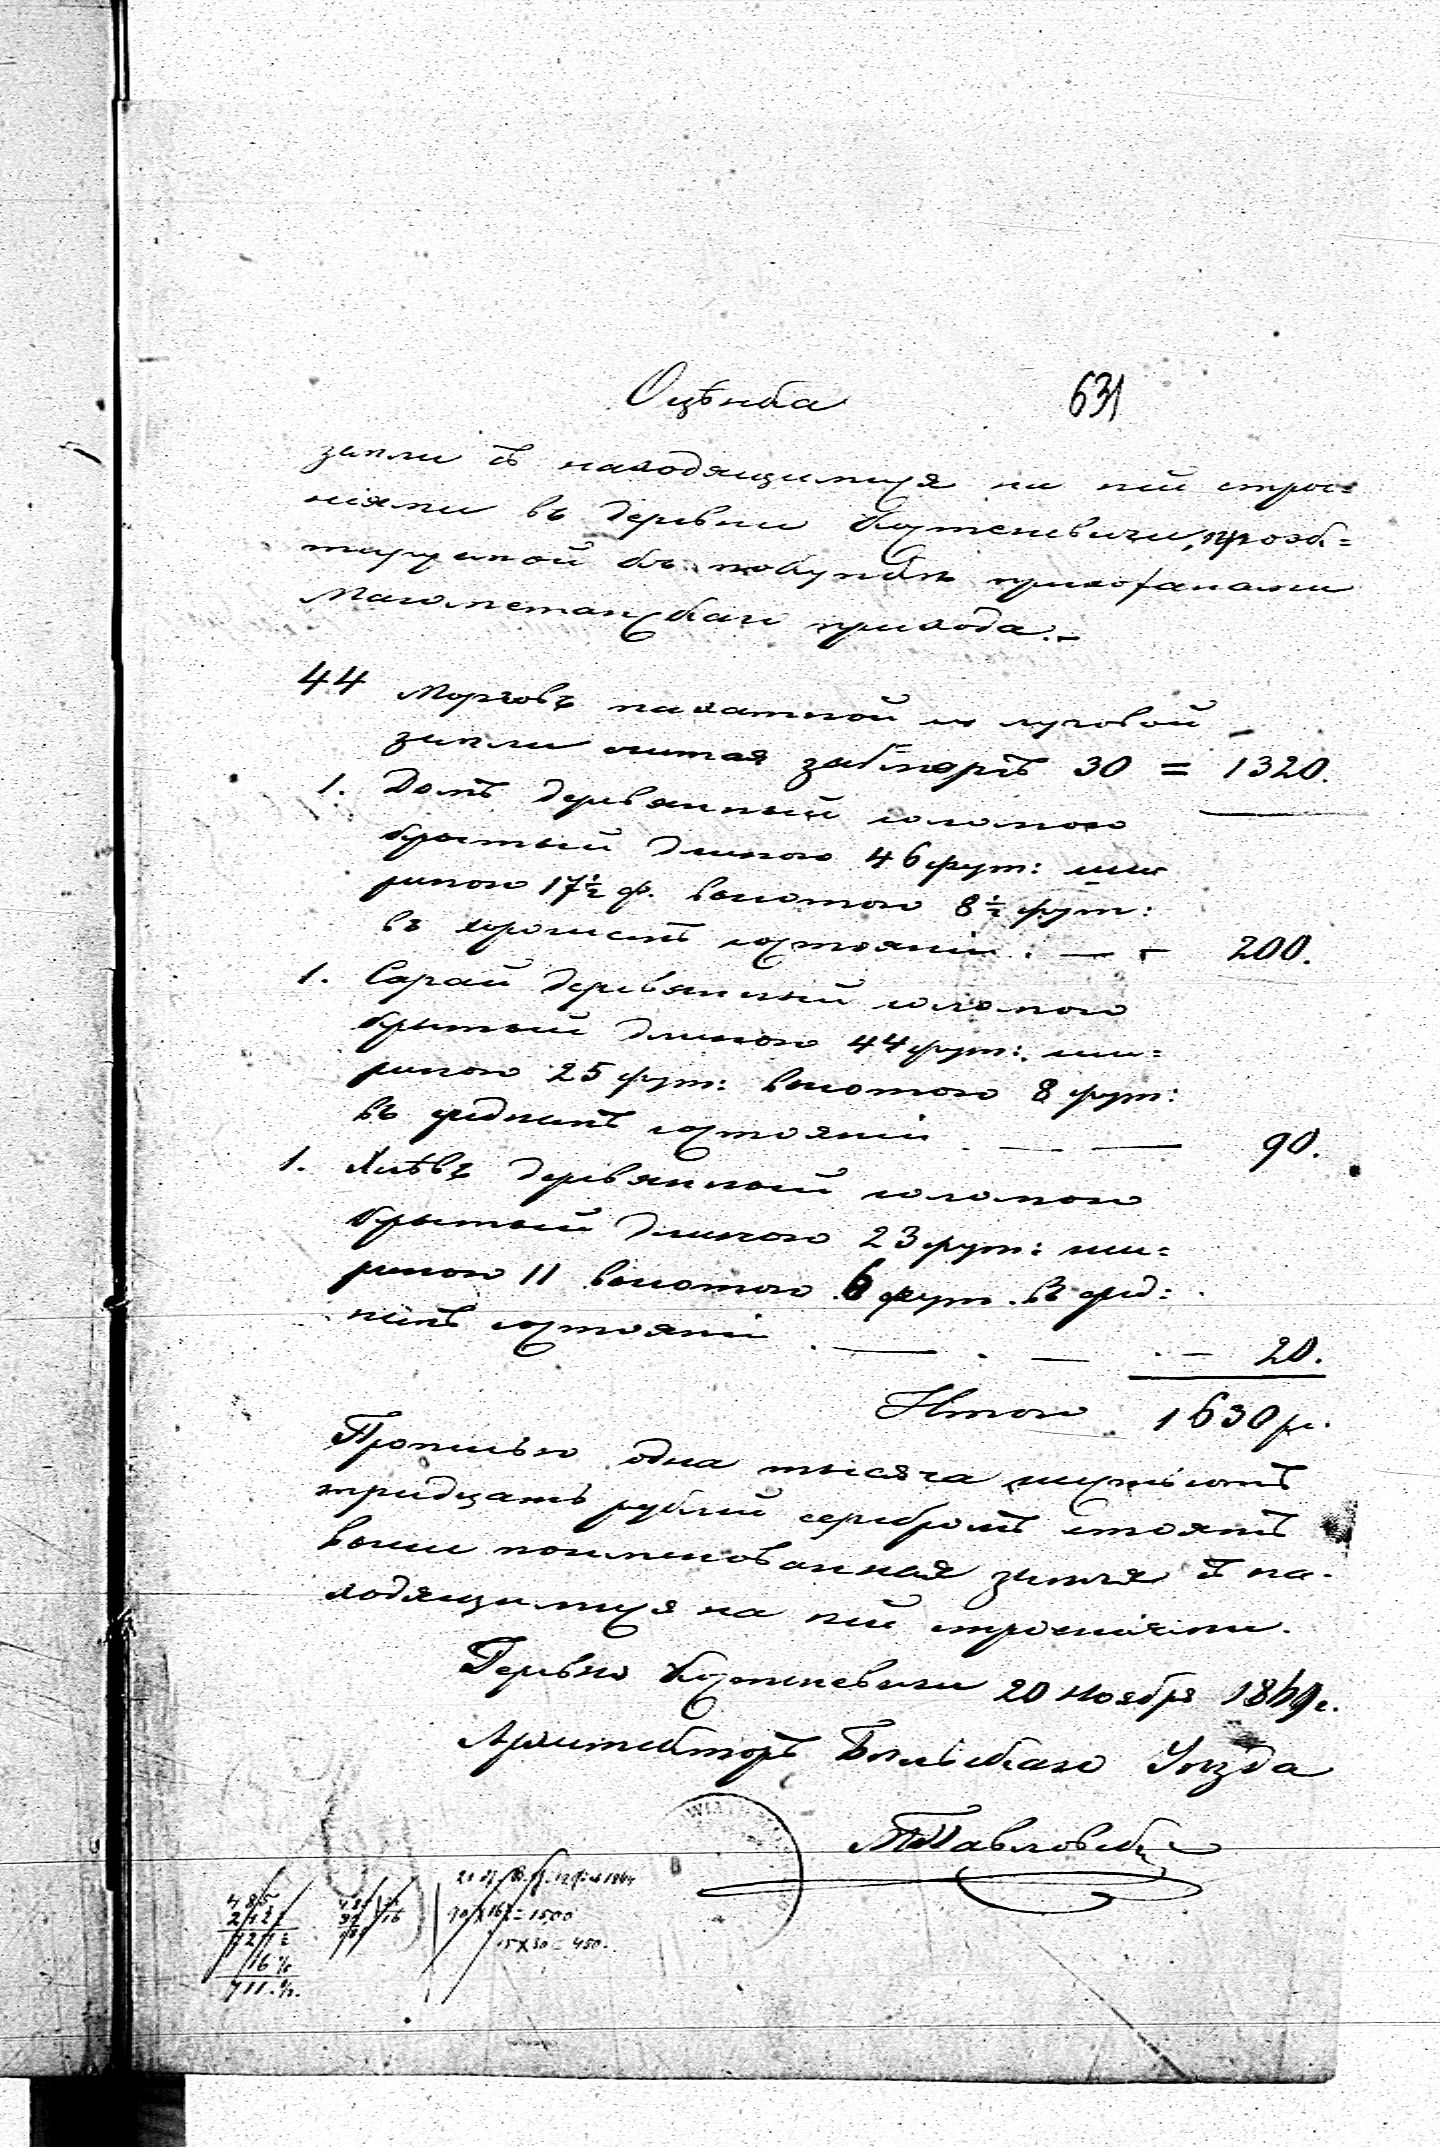 Оцѣнка
631
земли съ находящимися на ней строе=
ніями въ деревни Кастеневичи, проэк=
тируемой къ покупкѣ прихожанами
Магометанскаго прихода.
44 Морговъ пахатной и луговой
земли считая за моргъ 30 = 1320.
1. Домъ деревянный соломою
крытый длиною 46 фут: ши
риною 17½ ф. высотою 8½ фут:
въ хорошемъ состояніи. — 200.
1. Сарай деревянный соломою
крытый длиною 44 фут: ши=
риною 25 фут: высотою 8 фут:
въ среднемъ состояніи — — 90.
1. Хлѣвъ деревянный соломою
крытый длиною 23 фут: ши=
риною 11 высотою 6 фут. въ сред=
немъ состояніи . — . — . — 20.
Итого 1630 р.
Прописью одна тысяча шестьсотъ
тридцать рублей серебромъ стоятъ
выше поименованная земля съ на-
ходящимися на ней строеніями.
Деревня Кастеневичи 20 Ноября 1869 г.
Архитекторъ Бѣльскаго Уѣзда
Павловскій
485
212
16
711
15 х 30 = 450.